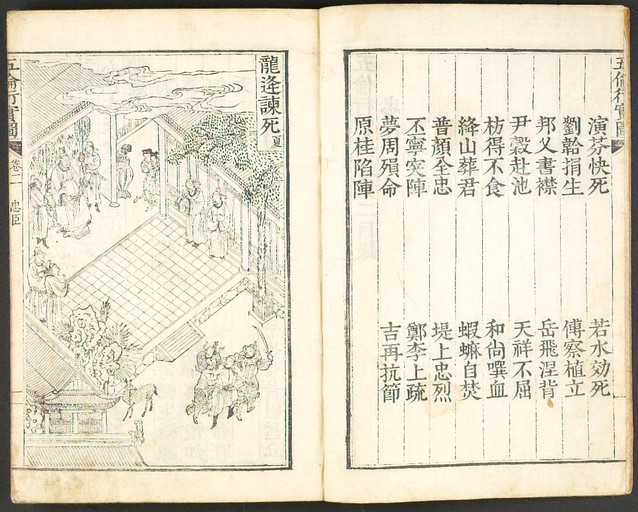 五倫行實圖
演芬快死
若水効死
劉韐捐生
傅察植立
邦乂書襟
岳飛涅背
尹穀赴池
天祥不屈
枋得不食
和尙噀血
絳山葬君
蝦䗫自焚
普顔全忠
堤上忠烈
丕寧突陣
鄭李上疏
夢周殞命
吉再抗節
原桂陷陣
龍逄諫死 夏
五倫行實圖
卷二
忠臣